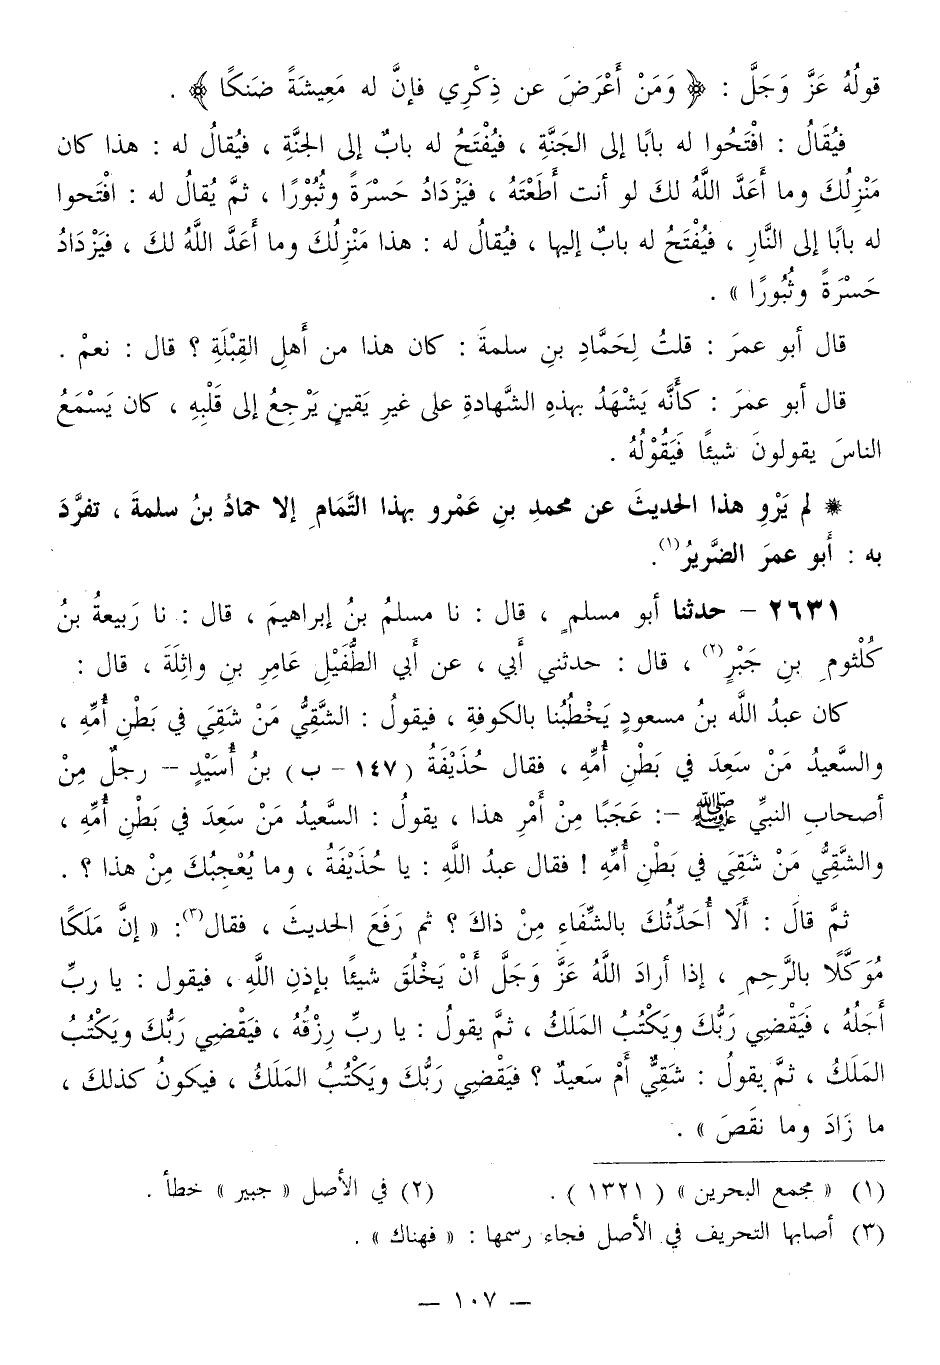 قولُهُ عَزَّ وَجَلَّ : ﴿ وَمَنْ أَعْرَضَ عن ذِكْرِي فإنَّ له مَعِيشَةً ضَنكًا ﴾ .
فيُقَالُ : افْتَحُوا له بابًا إلى الجَنَّةِ ، فيُفْتَحُ له بابٌ إلى الجنَّةِ ، فيُقالُ له : هذا كان
مَنْزِلُكَ وما أَعَدَّ اللَّهُ لكَ لو أنت أَطَعْتَهُ ، فيَزْدَادُ حَسْرَةً وثُبُوْرًا ، ثمَّ يُقالُ له : افْتَحوا
له بابًا إلى النَّارِ ، فيُفْتَحُ له بابٌ إليها ، فيُقالُ له : هذا مَنْزِلُكَ وما أَعَدَّ اللَّهُ لكَ ، فيَزْدَادُ
حَسْرَةً وثُبُورًا » .
قال أبو عمرَ : قلتُ لِحَمَّادِ بنِ سلمةَ : كان هذا من أهلِ القِبْلَةِ ؟ قال : نعمْ .
قال أبو عمرَ : كأنَّه يَشْهَدُ بهذهِ الشَّهادةِ على غيرِ يَقينٍ يَرْجِعُ إلى قَلْبِهِ ، كان يَسْمَعُ
الناسَ يقولونَ شيئًا فَيَقُوْلُهُ .
* لم يَرْوِ هذا الحديثَ عن محمدِ بنِ عَمْرو بهذا التَّمَامِ إلا حمادُ بنُ سلمةَ ، تفرَّدَ
به : أبو عمرَ الضَّريرُ(١).
٢٦٣١ – حدثنا أبو مسلمٍ ، قال : نا مسلمُ بنُ إبراهيمَ ، قال : نا رَبيعةُ بنُ
كُلْثومِ بنِ جَبْرٍ(٢) ، قال : حدثني أبي ، عن أبي الطُّفَيْلِ عَامِرِ بنِ واثِلَةَ ، قال :
كان عبدُ الله بنُ مسعودٍ يَخْطُبُنا بالكوفةِ ، فيقولُ : الشَّقِيُّ مَنْ شَقِيَ في بَطْنِ أُمِّهِ ،
والسَّعيدُ مَنْ سَعِدَ في بَطْنِ أُمِّهِ ، فقال حُذَيْفَةُ ( ١٤٧ – ب ) بنُ أُسَيْدٍ – رجلٌ مِنْ
أصحابِ النبيِّ ﷺ –: عَجَبًا مِنْ أَمْرِ هذا ، يقولُ : السَّعيدُ مَنْ سَعِدَ في بَطْنِ أُمِّهِ ،
والشَّقِيُّ مَنْ شَقِيَ في بَطْنِ أُمِّهِ ! فقال عبدُ اللَّهِ : يا حُذَيْفَةُ ، وما يُعْجِبُكَ مِنْ هذا ؟ .
ثمَّ قالَ : أَلَا أُحَدِّثُكَ بالشِّفَاءِ مِنْ ذاكَ ؟ ثم رَفَعَ الحديثَ ، فقال(٣): « إنَّ مَلَكًا
مُوَكَّلًا بالرَّحِمِ ، إذا أرادَ اللَّهُ عَزَّ وَجَلَّ أَنْ يَخْلُقَ شيئًا بإذنِ اللَّهِ ، فيقول : يا ربِّ
أَجَلُهُ ، فَيَقْضِي رَبُّكَ ويَكْتُبُ المَلَكُ ، ثمَّ يقولُ : يا ربِّ رِزْقُهُ ، فيَقْضِي رَبُّكَ ويَكْتُبُ
المَلَكُ ، ثمَّ يقولُ : شَقِيٌّ أَمْ سَعيدٌ ؟ فيَقْضِي رَبُّكَ ويَكْتُبُ المَلَكُ ، فيكونُ كذلكَ ،
ما زَادَ وما نقَصَ » .
(١) « مجمع البحرين » ( ١٣٢١ ) . (٢) في الأصل « جبير » خطأ .
(٣) أصابها التحريف في الأصل فجاء رسمها : « فهناك » .
– ١٠٧ –